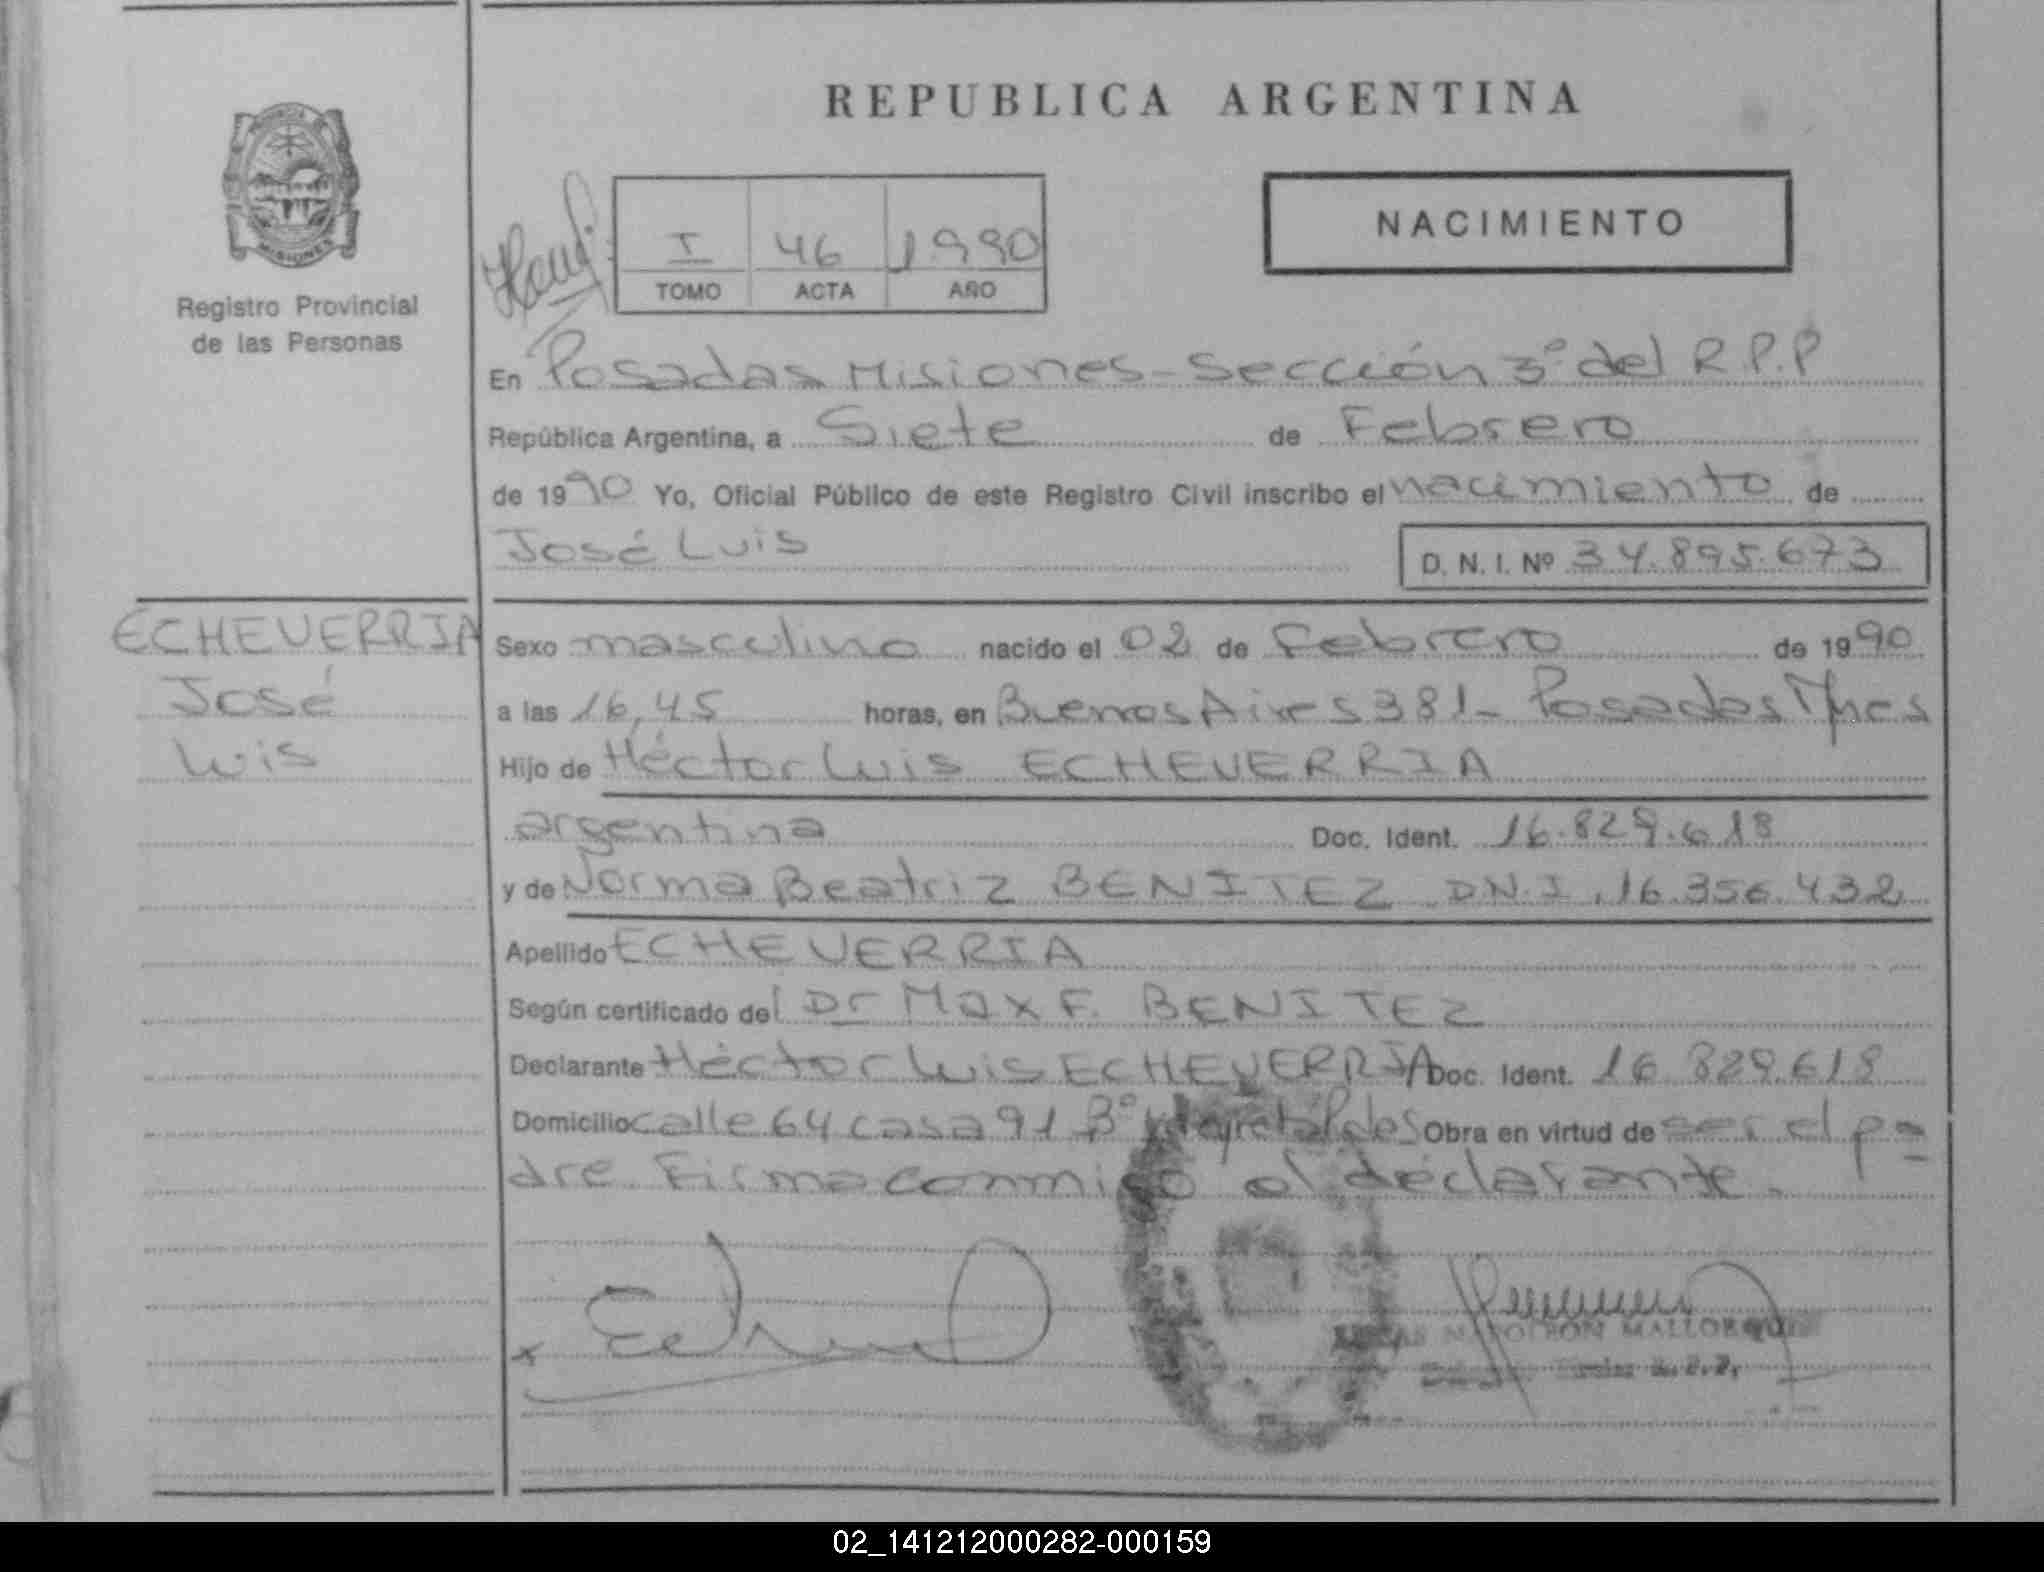 REPUBLICA ARGENTINA
MISIONES
Registro Provincial
de las Personas
I 46 1990
TOMO ACTA AÑO
NACIMIENTO
En Posadas Misiones - Sección 3º del R.P.P
República Argentina, a Siete de Febrero
de 1990 Yo, Oficial Público de este Registro Civil inscribo el nacimiento de
José Luis
D. N. I. Nº 34.895.673
ECHEVERRIA
José
Luis
Sexo masculino nacido el 02 de Febrero de 1990
a las 16,45 horas, en Buenos Aires 381 - Posadas Mnes
Hijo de Héctor Luis ECHEVERRIA
argentina Doc. Ident. 16.829.618
y de Norma Beatriz BENITEZ D.N.I. 16.356.432
Apellido ECHEVERRIA
Según certificado del Dr Max F. BENITEZ
Declarante Héctor Luis ECHEVERRIA Doc. Ident. 16.829.618
Domicilio calle 64 casa 91 Bº Obra en virtud de ser el pa-
dre. Firma conmigo el declarante.
NAPOLEON R.P.P.
02_141212000282-000159